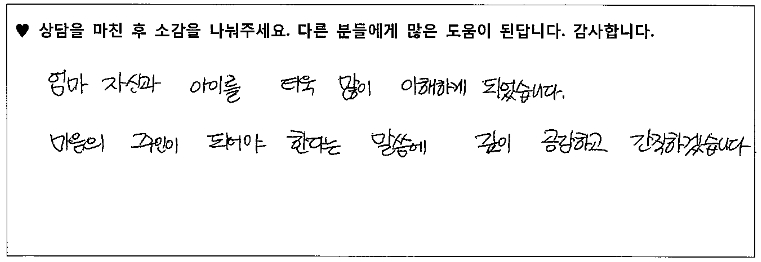 ♥ 상담을 마친 후 소감을 나눠주세요. 다른 분들에게 많은 도움이 된답니다. 감사합니다.
엄마 자신과 아이를 더욱 많이 이해하게 되었습니다.
마음의 주인이 되어야 한다는 말씀에 깊이 공감하고 간직하겠습니다